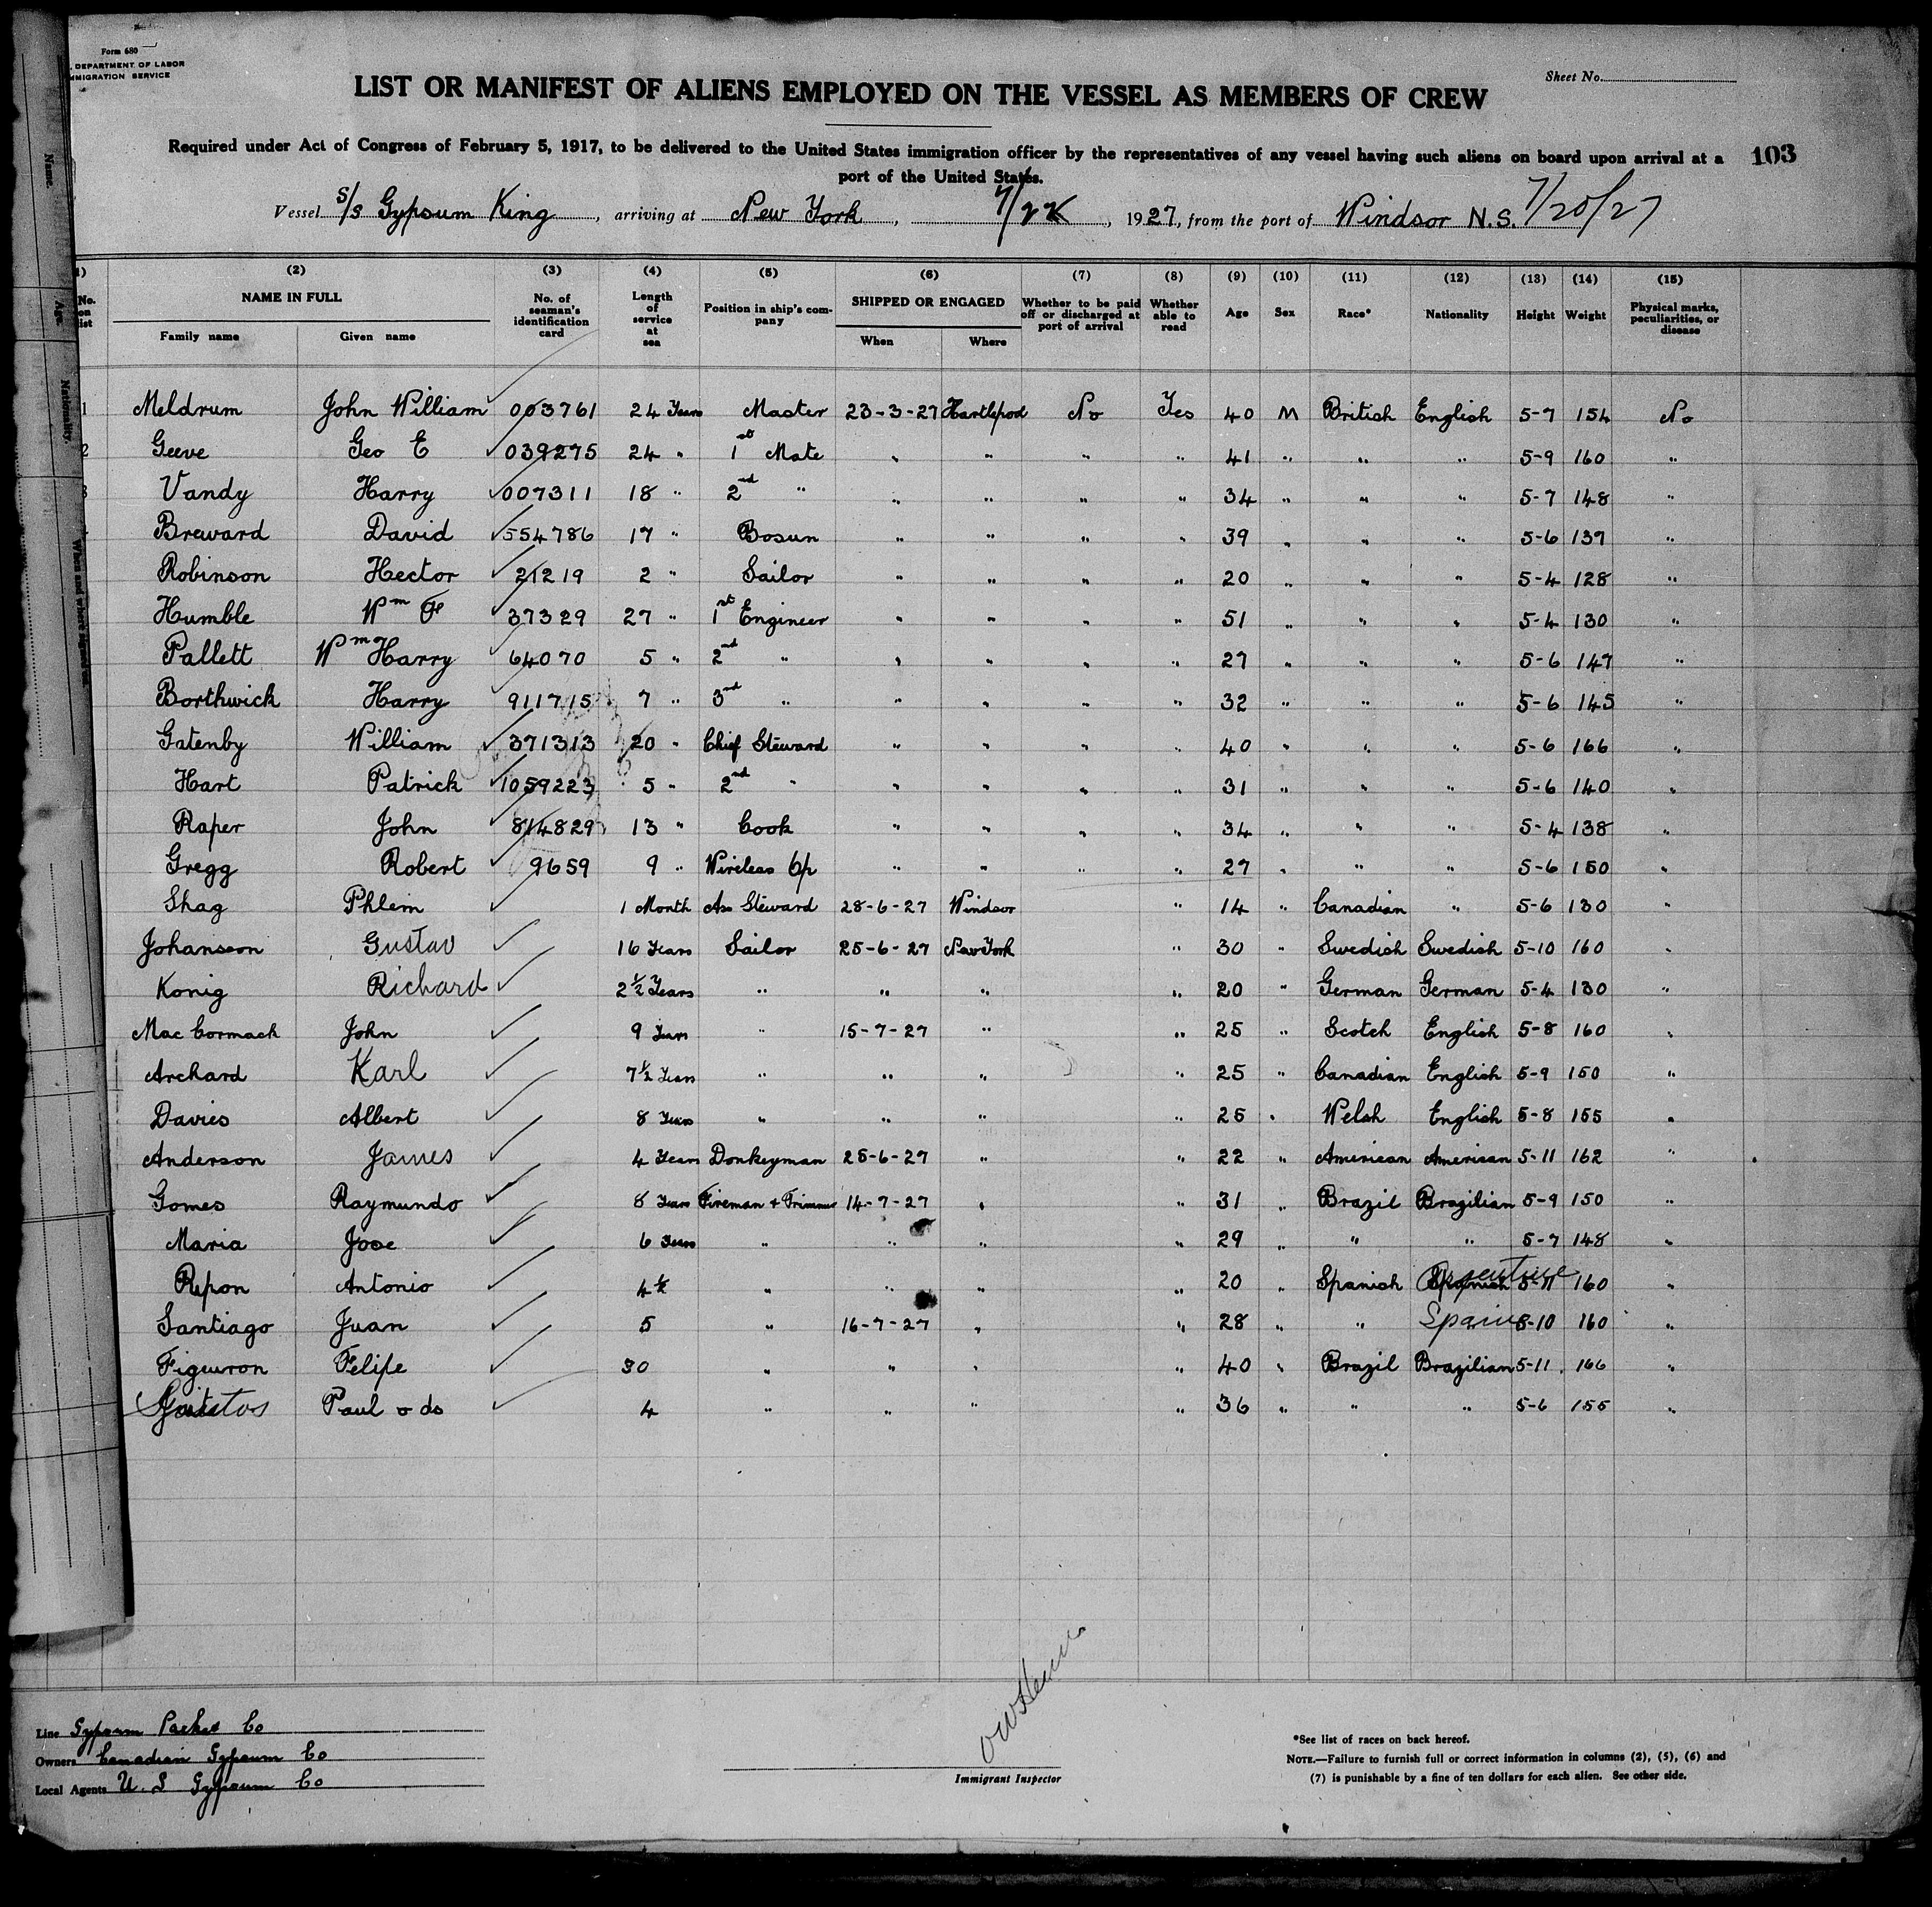 Form 680
DEPARTMENT OF LABOR
IMMIGRATION SERVICE
Sheet No.
LIST OR MANIFEST OF ALIENS EMPLOYED ON THE VESSEL AS MEMBERS OF CREW
Required under Act of Congress of February 5, 1917, to be delivered to the United States immigration officer by the representatives of any vessel having such aliens on board upon arrival at a 103
port of the United States.
Vessel S/S Gypsum King, arriving at New York, 7/22, 1927, from the port of Windsor N.S. 7/20/27
(2) (3) (4) (5) (6) (7) (8) (9) (10) (11) (12) (13) (14) (15)
No. on list NAME IN FULL Family name Given name No. of seaman's identification card Length of service at sea Position in ship's company SHIPPED OR ENGAGED When Where Whether to be paid off or discharged at port of arrival Whether able to read Age Sex Race* Nationality Height Weight Physical marks, peculiarities, or disease
1 Meldrum John William 003761 24 Years Master 23-3-27 Hartlepool No Yes 40 M British English 5-7 154 No
2 Geeve Geo E 039275 24 " 1st Mate " " " " 41 " " " 5-9 160 "
3 Vandy Harry 007311 18 " 2nd " " " " " 34 " " " 5-7 148 "
Breward David 554786 17 " Bosun " " " " 39 " " " 5-6 137 "
Robinson Hector 21219 2 " Sailor " " " " 20 " " " 5-4 128 "
Humble Wm F 37329 27 " 1st Engineer " " " " 51 " " " 5-4 130 "
Pallett Wm Harry 64070 5 " 2nd " " " " " 27 " " " 5-6 147 "
Borthwick Harry 911715 7 " 3rd " " " " " 32 " " " 5-6 145 "
Gatenby William 371313 20 " Chief Steward " " " " 40 " " " 5-6 166 "
Hart Patrick 1059223 5 " 2nd " " " " " 31 " " " 5-6 140 "
Raper John 814829 13 " Cook " " " " 34 " " " 5-4 138 "
Gregg Robert 9659 9 " Wireless Op " " " " 27 " " " 5-6 150 "
Shag Phlem 1 Month Ass Steward 28-6-27 Windsor " 14 " Canadian " 5-6 130 "
Johansson Gustav 16 Years Sailor 25-6-27 New York " 30 " Swedish Swedish 5-10 160 "
Konig Richard 2½ Years " " " " 20 " German German 5-4 130 "
Mac Cormack John 9 Years " 15-7-27 " " 25 " Scotch English 5-8 160 "
Archard Karl 7½ Years " " " " 25 " Canadian English 5-9 150 "
Davies Albert 8 Years " " " " 25 " Welsh English 5-8 155 "
Anderson James 4 Years Donkeyman 25-6-27 " " 22 " American American 5-11 162 "
Gomes Raymundo 8 Years Fireman + Trimmer 14-7-27 " " 31 " Brazil Brazilian 5-9 150 "
Maria Jose 6 Years " " " " 29 " " " 5-7 148 "
Repon Antonio 4½ " " " " 20 " Spanish Argentine 5-11 160 "
Santiago Juan 5 " 16-7-27 " " 28 " " Spain 5-10 160 "
Figueron Felipe 30 " " " " 40 " Brazil Brazilian 5-11 166 "
Paul o do 4 " " " " 36 " " " 5-6 155 "
Line Gypsum Packet Co
Owners Canadian Gypsum Co
Local Agents U. S Gypsum Co
Immigrant Inspector
*See list of races on back hereof.
NOTE.—Failure to furnish full or correct information in columns (2), (5), (6) and
(7) is punishable by a fine of ten dollars for each alien. See other side.
Name.
Age.
Nationality.